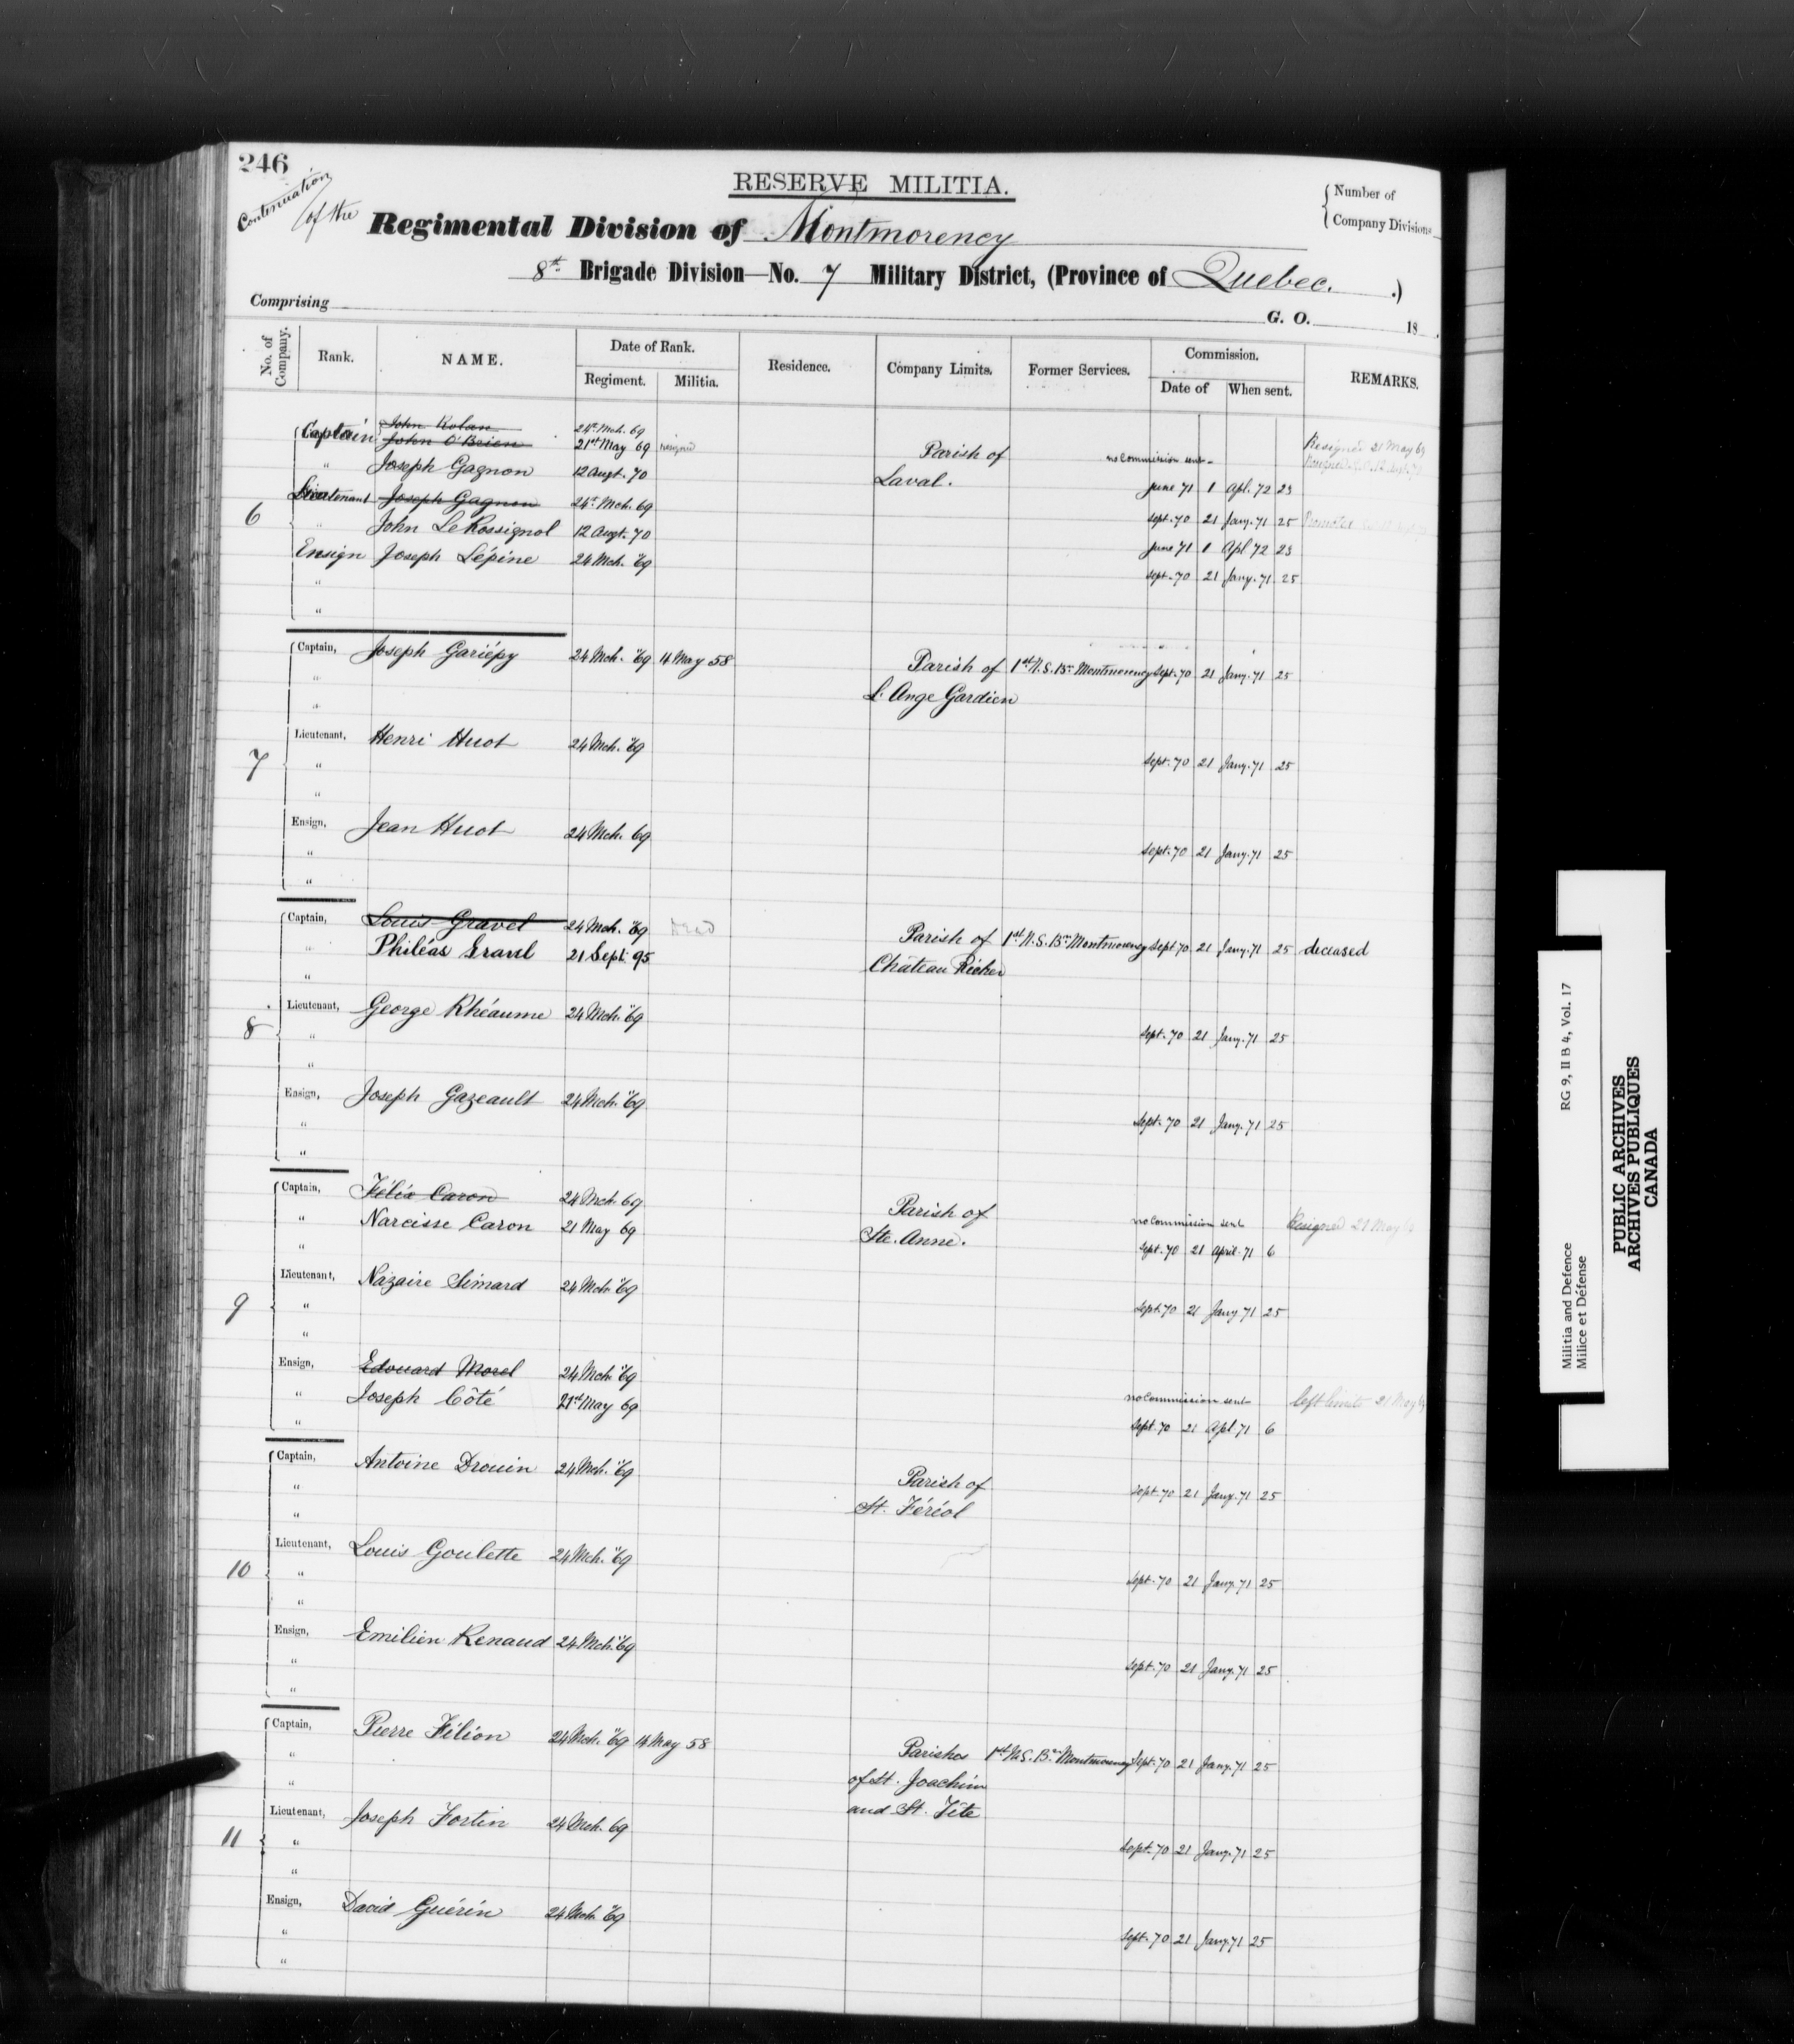 246
RESERVE MILITIA.
Continuation of the
Regimental Division of Montmorency
{ Number of
Company Divisions
8th Brigade Division—No. 7 Military District, (Province of Quebec. .)
Comprising
G. O. 18
No. of Company. Rank. NAME. Date of Rank. Residence. Company Limits. Former Services. Commission. REMARKS.
Regiment. Militia. Date of When sent.
Captain John 24th Mch. 69
John O'Brien 21st May 69 resigned no commission sent Resigned 21 May 69
" Joseph Gagnon 12 Augt. 70 Parish of Laval. June 71 1 Apl. 72 23
6 Lieutenant Joseph Gagnon 24th Mch. 69 Sept. 70 21 Jany. 71 25 Promoted
" John LeRossignol 12 Augt. 70 June 71 1 Apl 72 23
Ensign Joseph Lépine 24 Mch. "69 Sept. 70 21 Jany. 71 25
"
"
Captain, Joseph Gariépy 24 Mch. "69 14 May 58 Parish of 1st N.S. Bn Montmorency Sept. 70 21 Jany. 71 25
" L'Ange Gardien
"
Lieutenant, Henri Huot 24 Mch. "69
7 " Sept. 70 21 Jany. 71 25
"
Ensign, Jean Huot 24 Mch. 69
" Sept. 70 21 Jany. 71 25
"
Captain, Louis Gravel 24 Mch. "69 Dead Parish of 1st N.S. Bn Montmorency Sept 70 21 Jany. 71 25 deceased
" Philéas Gravel 21 Sept. 95 Château Richer
"
8 Lieutenant, George Rhéaume 24 Mch. "69
" Sept. 70 21 Jany. 71 25
"
Ensign, Joseph Gazeault 24 Mch. "69
" Sept. 70 21 Jany. 71 25
"
Captain, Félix Caron 24 Mch. 69 Parish of no commission sent Resigned 21 May
" Narcisse Caron 21 May 69 Ste. Anne. Sept. 70 21 April. 71 6
"
Lieutenant, Nazaire Simard 24 Mch. "69
9 " Sept. 70 21 Jany. 71 25
"
Ensign, Edouard Morel 24 Mch. "69 no commission sent left limits 21 May
" Joseph Côté 21st May 69 Sept. 70 21 Apl. 71 6
"
Captain, Antoine Drouin 24 Mch. "69 Parish of
" St. Féréol Sept. 70 21 Jany. 71 25
"
Lieutenant, Louis Goulette 24 Mch. "69
10 " Sept. 70 21 Jany. 71 25
"
Ensign, Emilien Renaud 24 Mch. "69
" Sept. 70 21 Jany. 71 25
"
Captain, Pierre Félion 24 Mch. "69 14 May 58 Parishes 1st N.S. Bn Montmorency Sept. 70 21 Jany. 71 25
" of St. Joachim
" and St. Tite
Lieutenant, Joseph Fortin 24 Mch. 69
11 " Sept. 70 21 Jany. 71 25
"
Ensign, David Guérin 24 Mch. "69
" Sept. 70 21 Jany. 71 25
"
Militia and Defence RG 9, II B 4, Vol. 17
Milice et Défense
PUBLIC ARCHIVES
ARCHIVES PUBLIQUES
CANADA